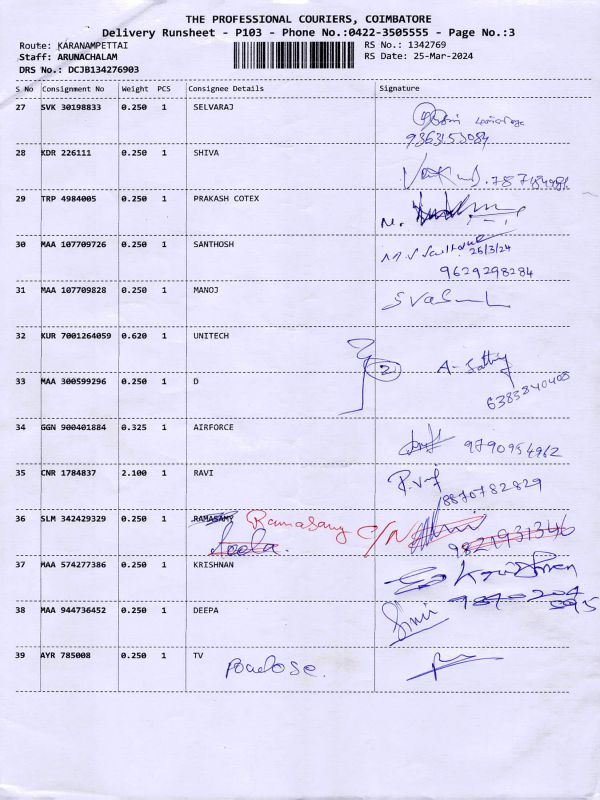 THE PROFESSIONAL COURIERS, COIMBATORE
Delivery Runsheet - P103 - Phone No.:0422-3505555 - Page No.:3
Route: KARANAMPETTAI RS No.: 1342769
Staff: ARUNACHALAM RS Date: 25-Mar-2024
DRS No.: DCJB134276903
S No Consignment No Weight PCS Consignee Details Signature
27 SVK 30198833 0.250 1 SELVARAJ
9363153084
28 KDR 226111 0.250 1 SHIVA
29 TRP 4984005 0.250 1 PRAKASH COTEX
30 MAA 107709726 0.250 1 SANTHOSH
25/3/24
9629298284
31 MAA 107709828 0.250 1 MANOJ
32 KUR 7001264059 0.620 1 UNITECH
2
33 MAA 300599296 0.250 1 D
6383840408
34 GGN 900401884 0.325 1 AIRFORCE
9790954962
35 CNR 1784837 2.100 1 RAVI
8870782829
36 SLM 342429329 0.250 1 RAMASAMY Ramasamy C/N
37 MAA 574277386 0.250 1 KRISHNAN
38 MAA 944736452 0.250 1 DEEPA
39 AYR 785008 0.250 1 TV